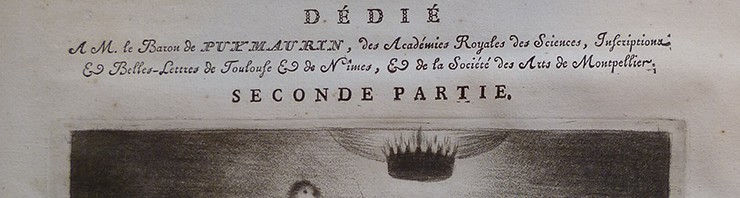 DÉDIÉ
A M. le Baron de PUYMAURIN, des Académies Royales des Sciences, Inſcriptions,
& Belles-Lettres de Toulouſe & de Nîmes, & de la Société des Arts de Montpellier.
SECONDE PARTIE.